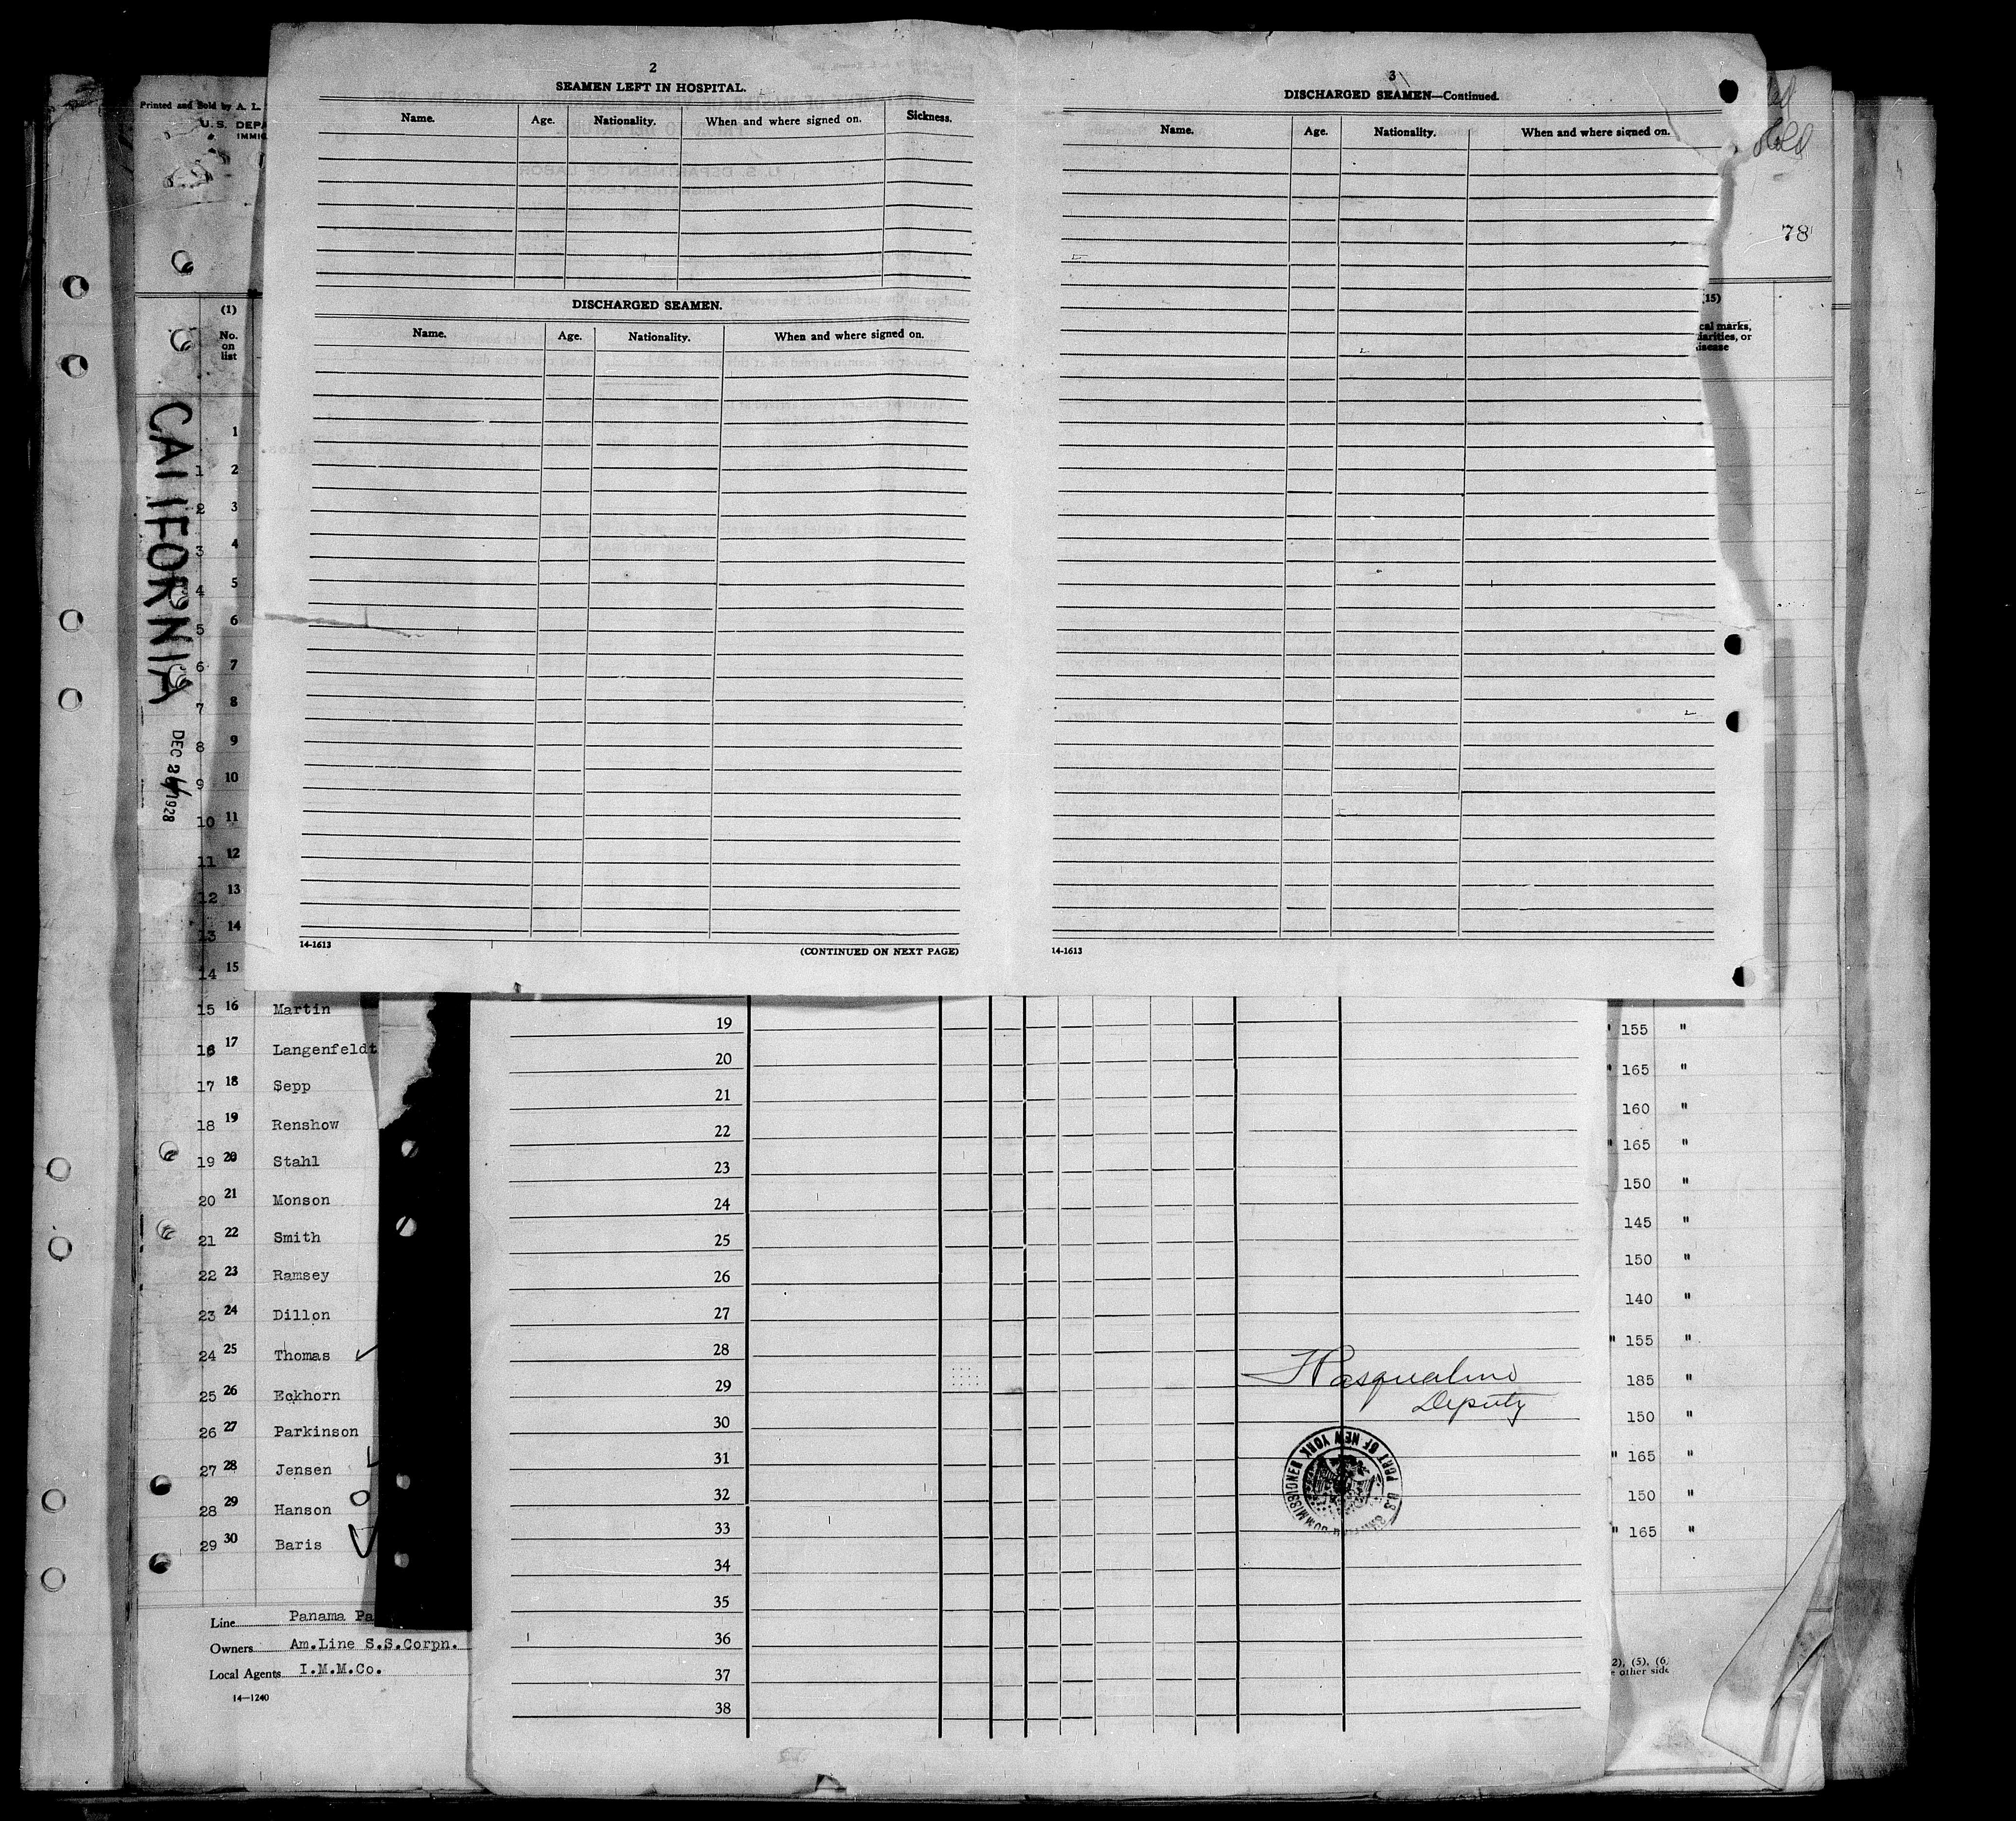 2
SEAMEN LEFT IN HOSPITAL.
Name. Age. Nationality. When and where signed on. Sickness.
DISCHARGED SEAMEN.
Name. Age. Nationality. When and where signed on.
14-1613 (CONTINUED ON NEXT PAGE)
3
DISCHARGED SEAMEN—Continued.
Name. Age. Nationality. When and where signed on.
14-1613
Printed and Sold by A. L.
U.S. DEPA
IMMIG
(1)
No.
on
list
CALIFORNIA
DEC 1928
1
1 2
2 3
3 4
4 5
5 6
6 7
7 8
8 9
9 10
10 11
11 12
12 13
13 14
14 15
15 16 Martin
16 17 Langenfeldt
17 18 Sepp
18 19 Renshow
19 20 Stahl
20 21 Monson
21 22 Smith
22 23 Ramsey
23 24 Dillon
24 25 Thomas
25 26 Eckhorn
26 27 Parkinson
27 28 Jensen
28 29 Hanson
29 30 Baris
Line Panama Pa
Owners Am.Line S.S.Corpn.
Local Agents I.M.M.Co.
14—1240
19
20
21
22
23
24
25
26
27
28
29
30
31
32
33
34
35
36
37
38
Pasqualino
Deputy
PORT OF NEW YORK
U.S.
78
(15)
cal marks,
liarities, or
disease
" 155 "
" 165 "
160 "
" 165 "
150 "
145 "
150 "
140 "
" 155 "
185 "
150 "
" 165 "
150 "
" 165 "
2), (5), (6)
e other side